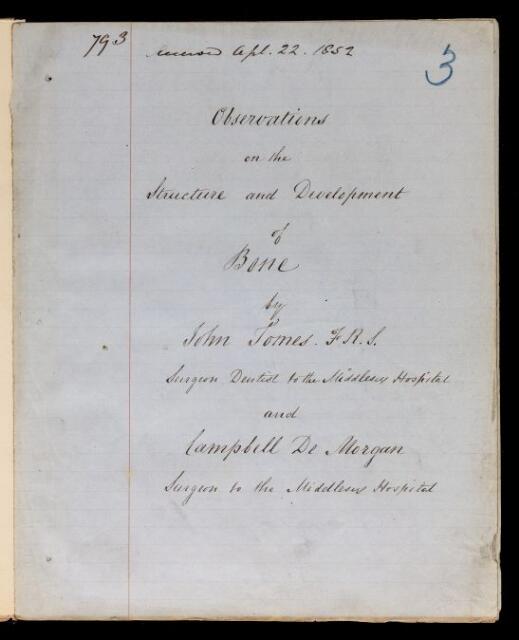 793
received Apl. 22. 1852
3
Observations
on the
Structure and Development
of
Bone
by
John Tomes. F.R.S.
Surgeon Dentist to the Middlesex Hospital
and
Campbell De Morgan
Surgeon to the Middlesex Hospital